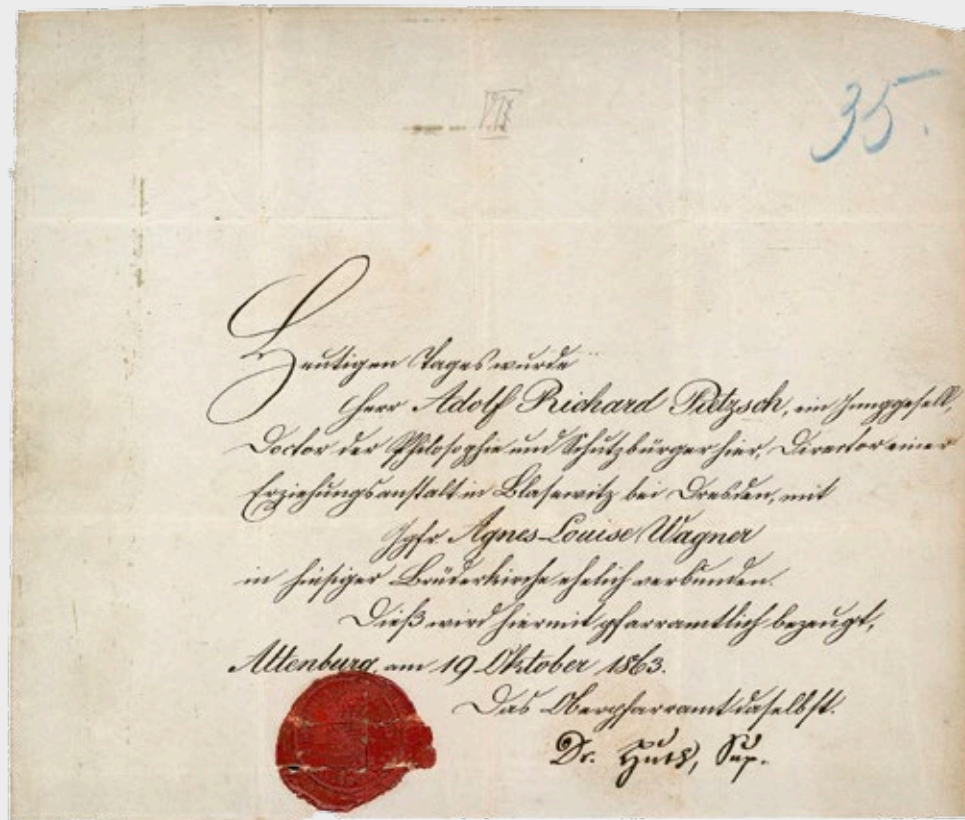 35.
Heutigen Tages wurde
Herr Adolf Richard Pietzsch, ein Junggesell,
Doctor der Philosophie und Schutzbürger hier, Director einer
Erziehungsanstalt in Blasewitz bei Dresden, mit
Jgfr Agnes Louise Wagner
in hiesiger Brüderkirche ehelich verbunden.
Dieß wird hiermit pfarramtlich bezeugt,
Altenburg, am 19. Oktober 1863.
Das Oberpfarramt daselbst.
Dr. Huth, Sup.